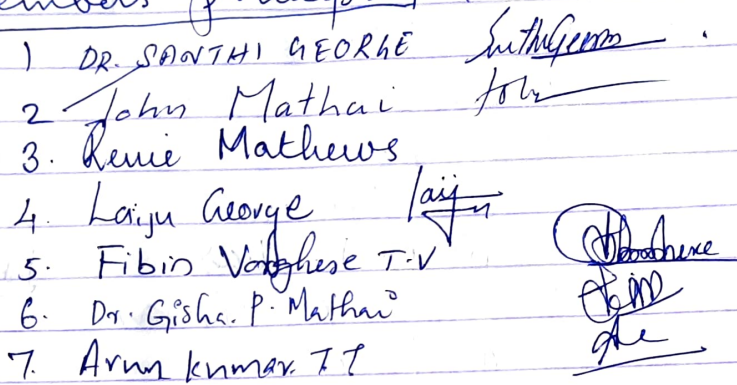 Members
1 DR. SANTHI GEORGE
2 John Mathai
3. Renie Mathews
4. Laiju George Laiju
5. Fibin Varghese T.V
6. Dr. Gisha. P. Mathai
7. Arun kumar. T T